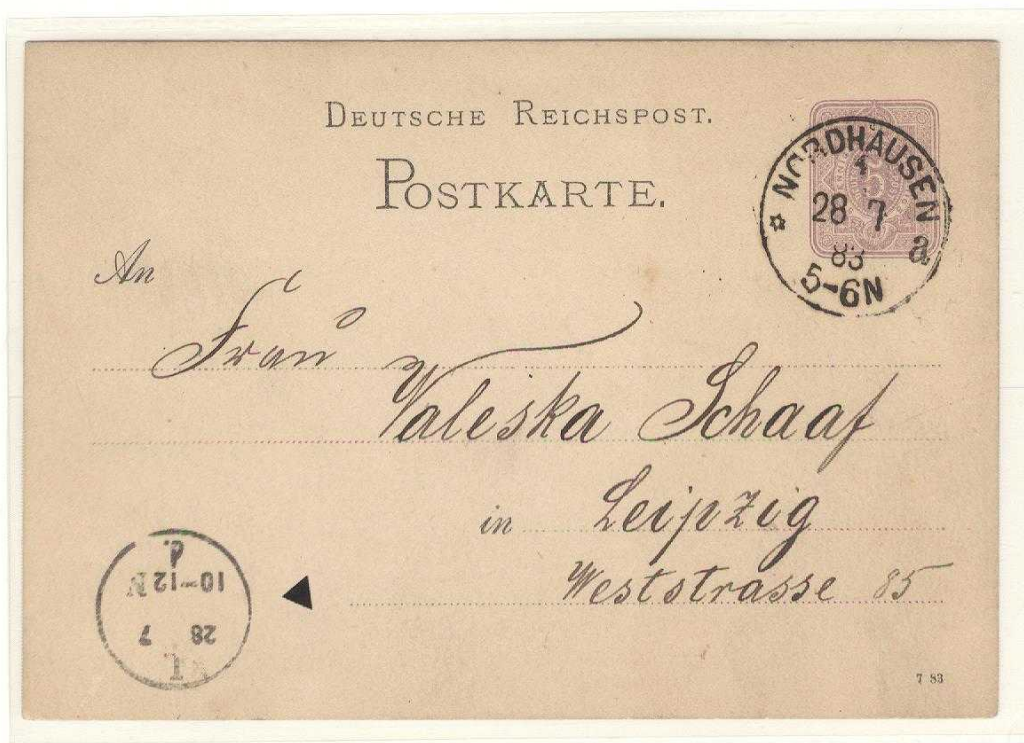 DEUTSCHE REICHSPOST.
POSTKARTE.
5
NORDHAUSEN
28 7
83
5-6N
a
An
Frau
Valeska Schaaf
in Leipzig
Weststrasse 85
1
28 7
10-12N
d.
7 83